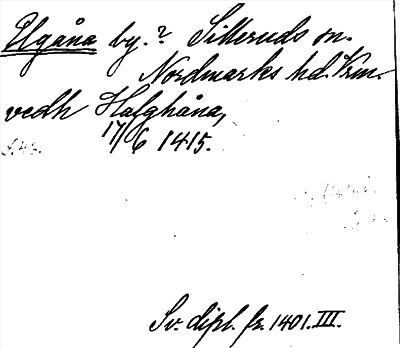 Ulgåna by.? Silleruds sn.
Nordmarks hd. Vrm.
vedh Halghåna,
17/6 1415.
Sv. dipl. fr. 1401. III.